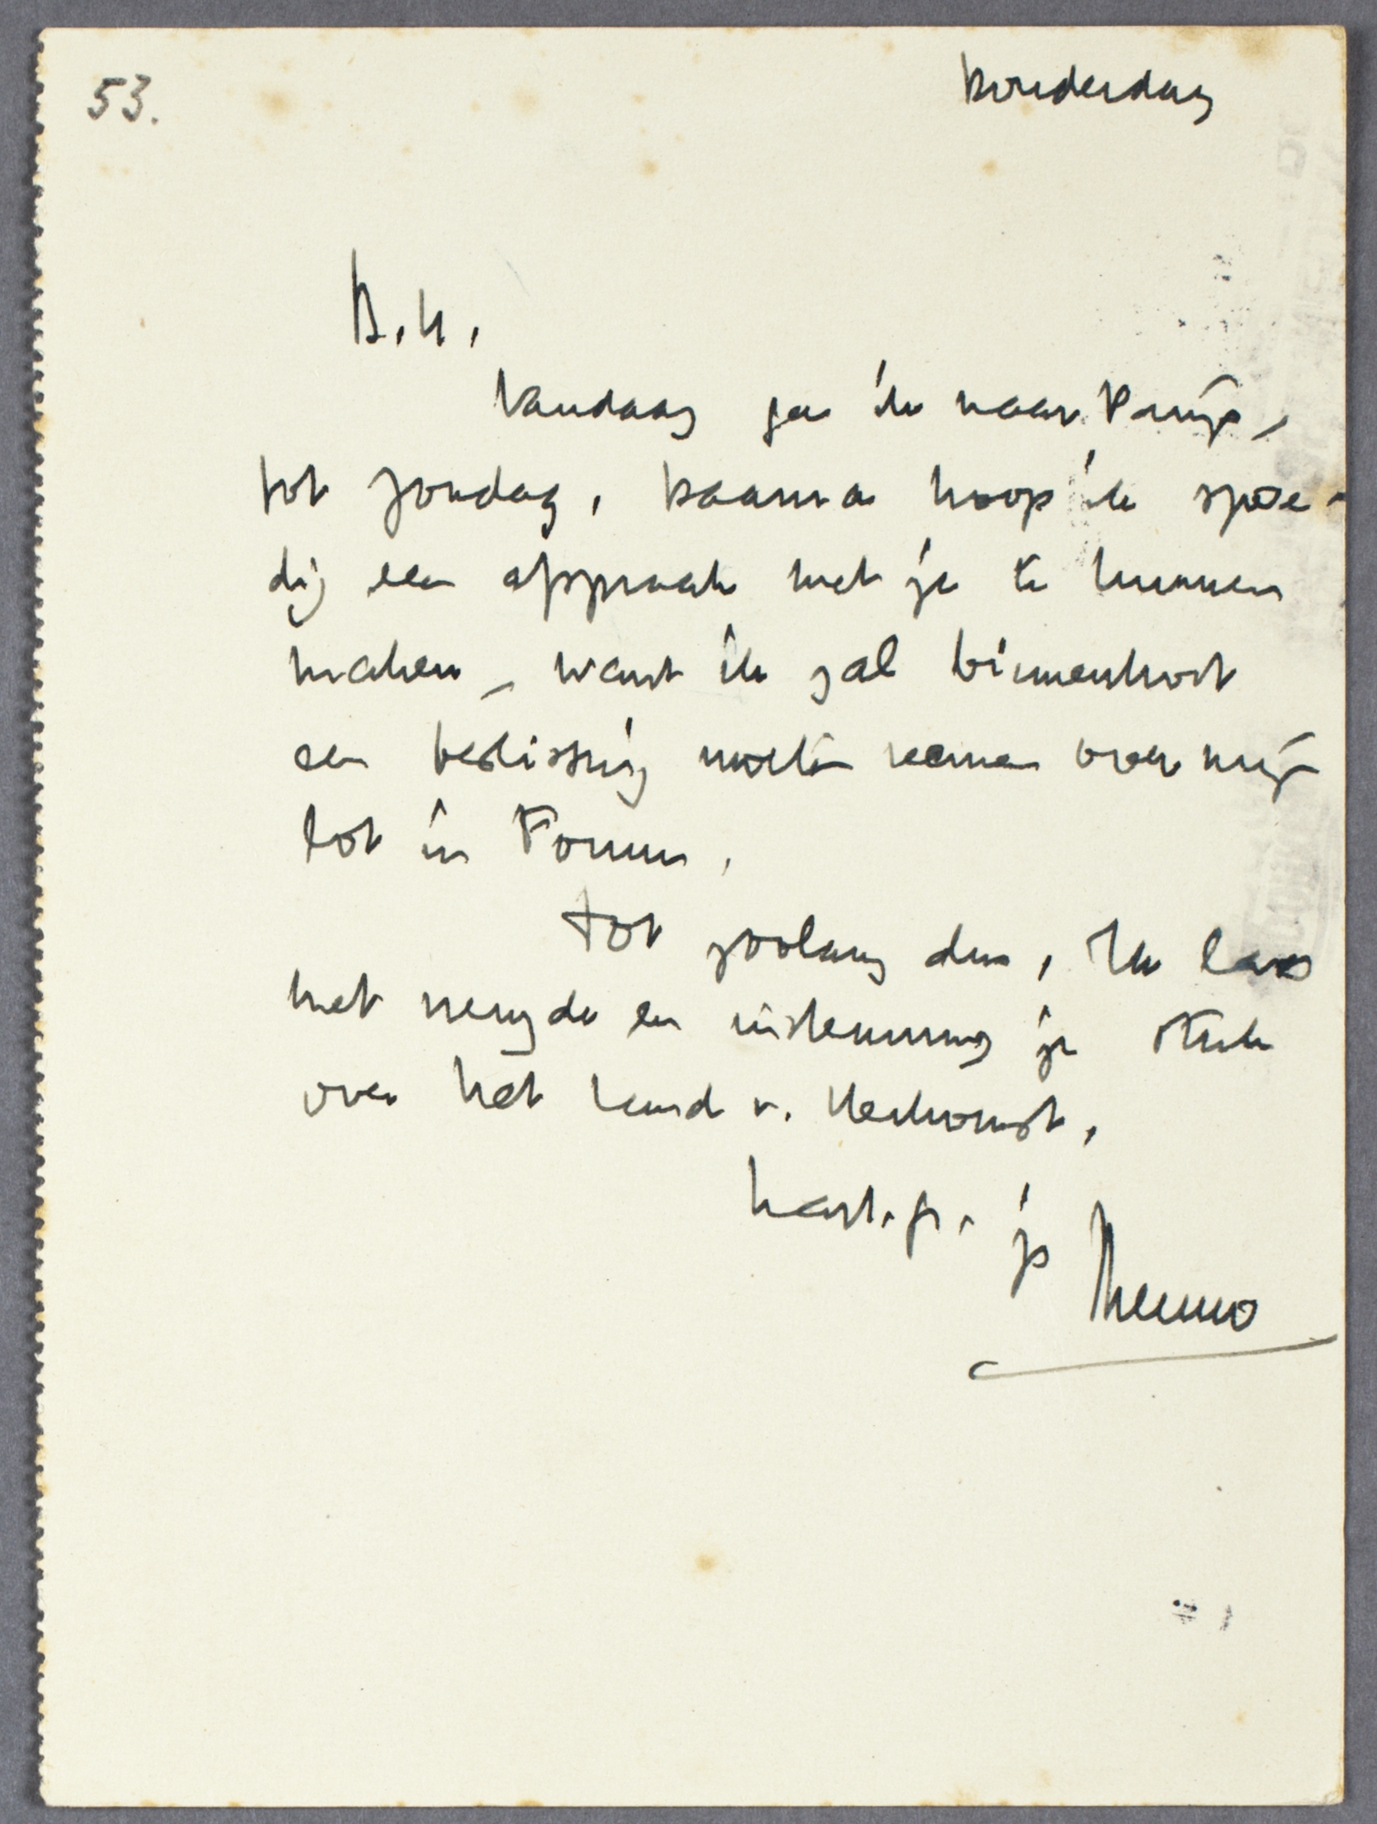 53.
Donderdag
B.H.
Vandaag ga ik naar Parijs,
tot Zondag, Daarna hoop ik spoe-
dig een afspraak met je te kunnen
maken, want ik zal binnenkort
een beslissing moeten nemen over mijn
lot in Forum.
Tot zoolang dus, Ik las
met vreugde en instemming je stuk
over het Land v. Herkomst,
hart. gr. je
Menno